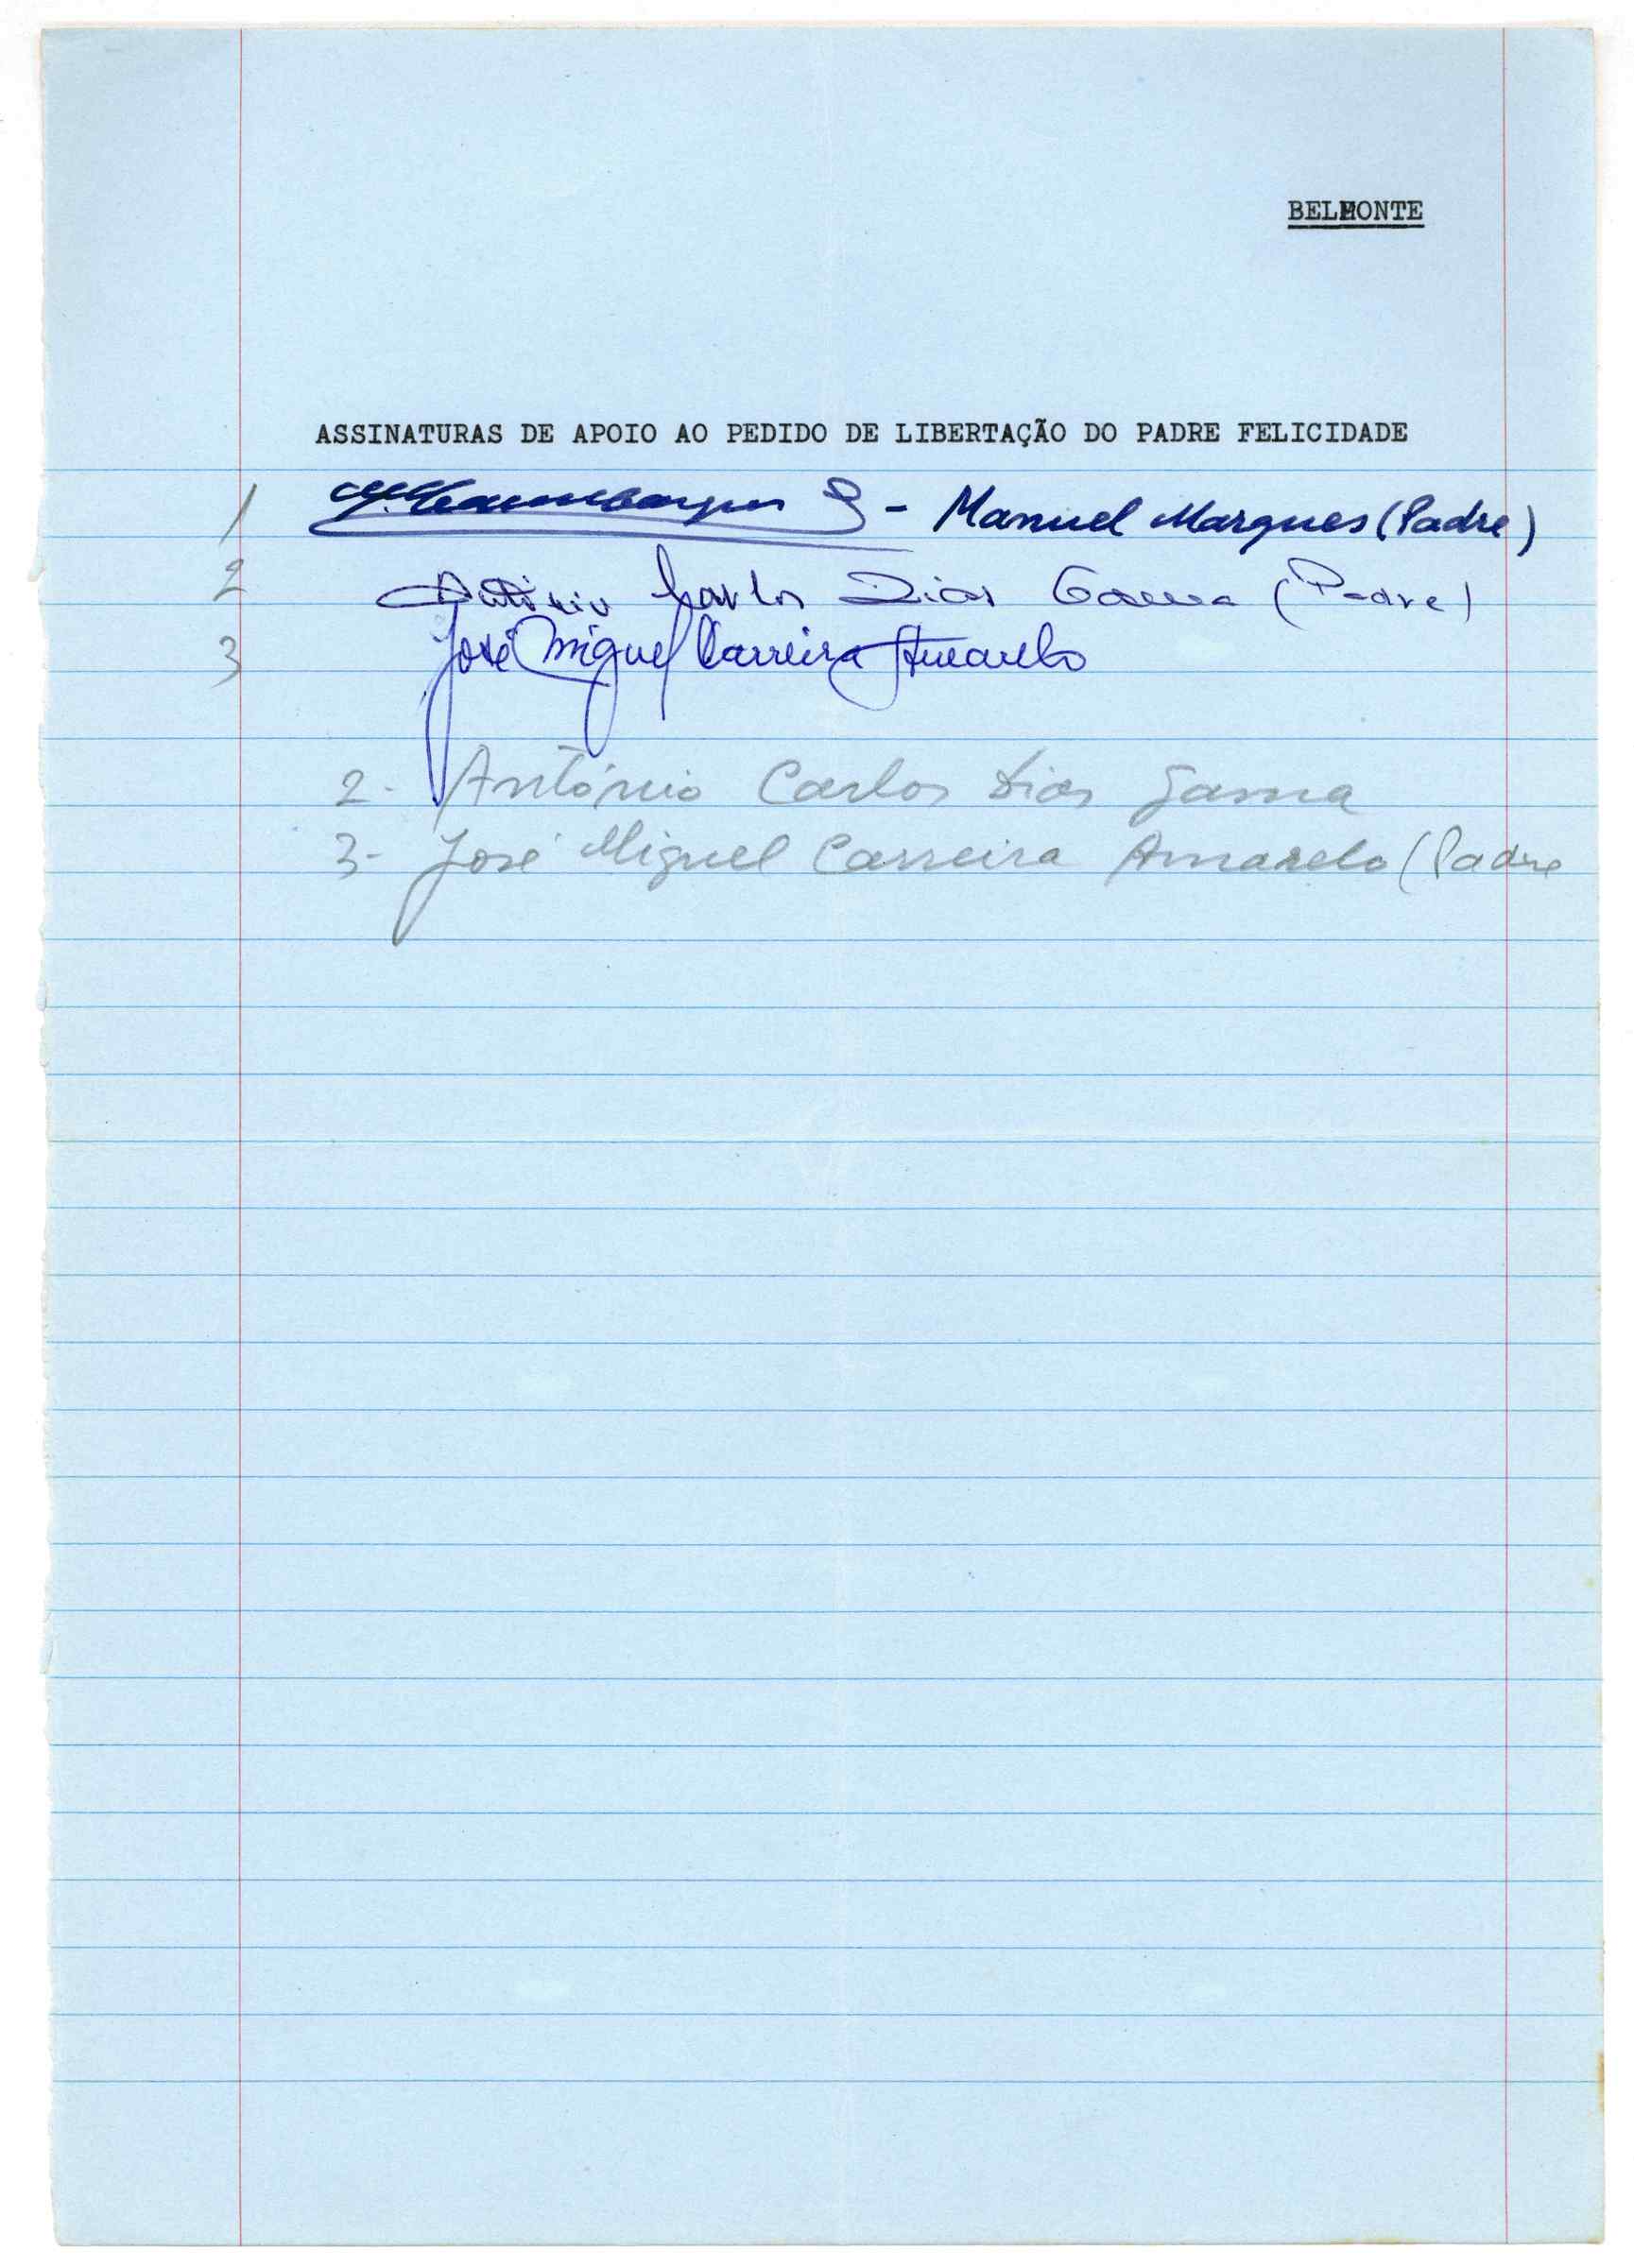 BELMONTE
ASSINATURAS DE APOIO AO PEDIDO DE LIBERTAÇÃO DO PADRE FELICIDADE
1 - Manuel Marques (Padre)
2 António Carlos Dias Gama (Padre)
3 José Miguel Carreira Amarelo
2- António Carlos Dias Gama
3- José Miguel Carreira Amarelo (Padre